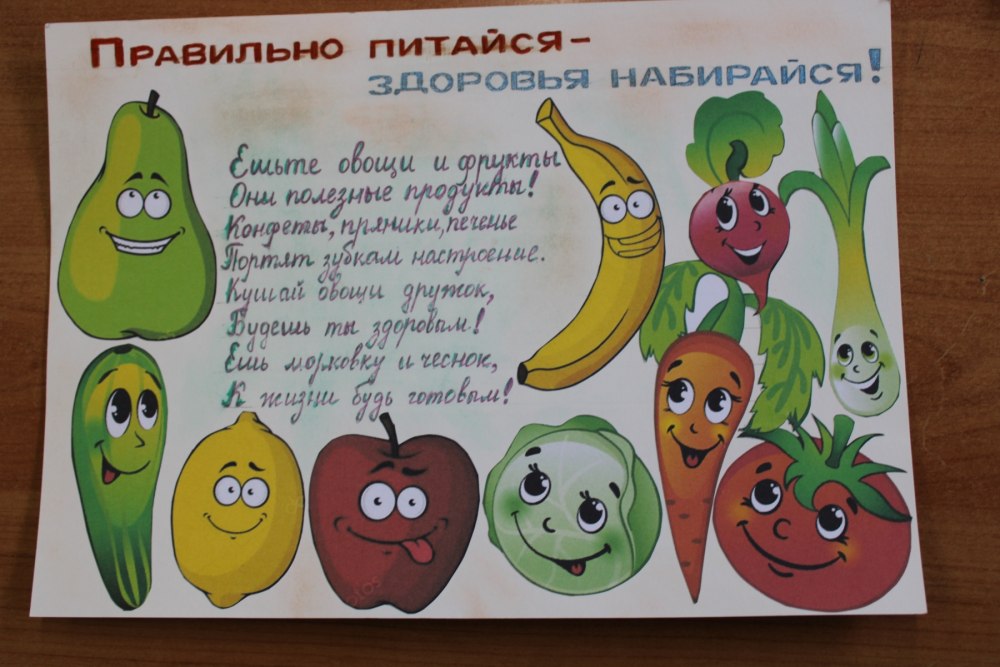 Правильно питайся –
здоровья набирайся!
Ешьте овощи и фрукты
Они полезные продукты!
Конфеты, пряники, печенье
Портят зубкам настроение.
Кушай овощи дружок,
Будешь ты здоровым!
Ешь морковку и чеснок,
К жизни будь готовым!